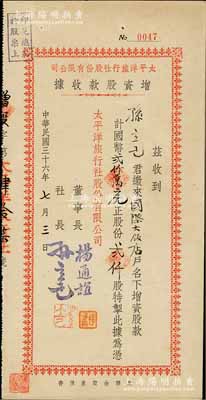 No 0047
太平洋旅行社股份有限公司
增資股款收據
茲收到
孫立己君繳來國際大飯店戶名下增資股款
計國幣貳仟萬元正股份貳仟股特掣此據為憑
太平洋旅行社股份有限公司
董事長 楊通誼
社長 孫立己
中華民國三十六年七月三日